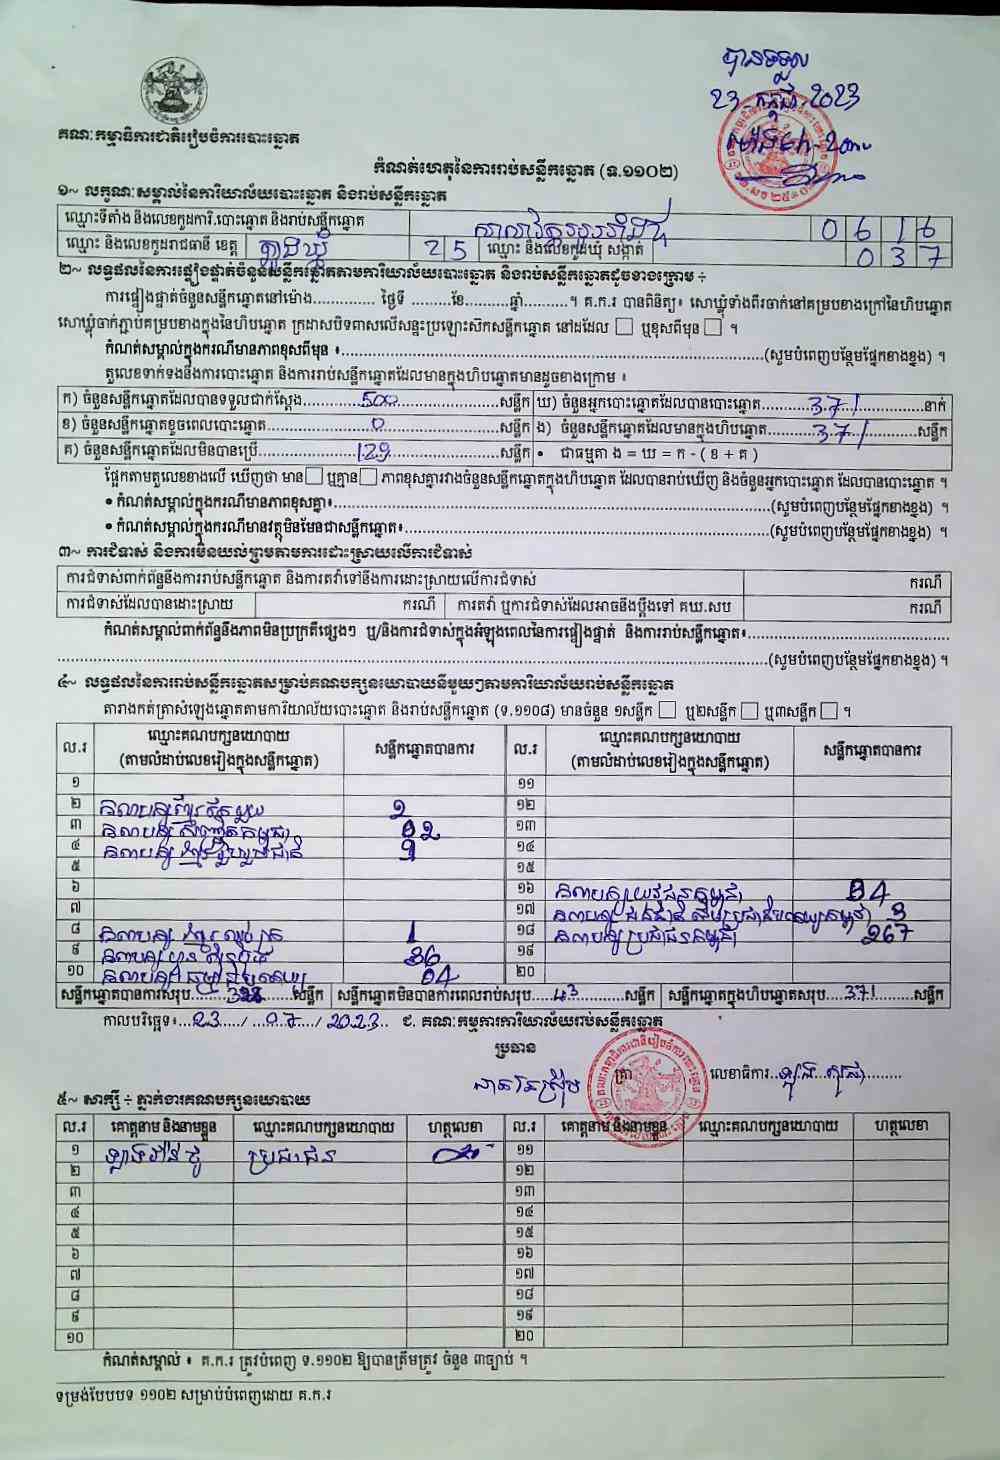 បានទទួល
23-កក្កដា-2023
គណៈកម្មាធិការជាតិរៀបចំការបោះឆ្នោត
កំណត់ហេតុនៃការរាប់សន្លឹកឆ្នោត (ទ.១១០២)
១~ លក្ខណៈសម្គាល់នៃការិយាល័យបោះឆ្នោត និងរាប់សន្លឹកឆ្នោត
ឈ្មោះទីតាំង និងលេខកូដការិ.បោះឆ្នោត និងរាប់សន្លឹកឆ្នោត 0616
ឈ្មោះ និងលេខកូដរាជធានី ខេត្ត ត្បូងឃ្មុំ 25 ឈ្មោះ និងលេខកូដឃុំ សង្កាត់ 037
២~ លទ្ធផលនៃការផ្ទៀងផ្ទាត់ចំនួនសន្លឹកឆ្នោតតាមការិយាល័យបោះឆ្នោត និងរាប់សន្លឹកឆ្នោតដូចខាងក្រោម ÷
ការផ្ទៀងផ្ទាត់ចំនួនសន្លឹកឆ្នោតនៅម៉ោង.............. ថ្ងៃទី .........ខែ..........ឆ្នាំ..........។ គ.ក.រ បានពិនិត្យ៖ សោឃ្លុំទាំងពីរចាក់នៅគម្របខាងក្រៅនៃហិបឆ្នោត
សោឃ្លុំចាក់ភ្ជាប់គម្របខាងក្នុងនៃហិបឆ្នោត ក្រដាសបិទពាសលើសន្ទះប្រឡោះស៊កសន្លឹកឆ្នោត នៅដដែល ☐ ឬខុសពីមុន ☐ ។
កំណត់សម្គាល់ក្នុងករណីមានភាពខុសពីមុន ៖..........(សូមបំពេញបន្ថែមផ្នែកខាងខ្នង) ។
តួលេខទាក់ទងនឹងការបោះឆ្នោត និងការរាប់សន្លឹកឆ្នោតដែលមានក្នុងហិបឆ្នោតមានដូចខាងក្រោម ៖
ក) ចំនួនសន្លឹកឆ្នោតដែលបានទទួលជាក់ស្តែង..........500..........សន្លឹក ឃ) ចំនួនអ្នកបោះឆ្នោតដែលបានបោះឆ្នោត..........371..........នាក់
ខ) ចំនួនសន្លឹកឆ្នោតខូចពេលបោះឆ្នោត..........0..........សន្លឹក ង) ចំនួនសន្លឹកឆ្នោតដែលមានក្នុងហិបឆ្នោត..........371..........សន្លឹក
គ) ចំនួនសន្លឹកឆ្នោតដែលមិនបានប្រើ..........129..........សន្លឹក • ជាធម្មតា ង = ឃ = ក - ( ខ + គ )
ផ្អែកតាមតួលេខខាងលើ ឃើញថា មាន ☐ ឬគ្មាន ☐ ភាពខុសគ្នារវាងចំនួនសន្លឹកឆ្នោតក្នុងហិបឆ្នោត ដែលបានរាប់ឃើញ និងចំនួនអ្នកបោះឆ្នោត ដែលបានបោះឆ្នោត ។
• កំណត់សម្គាល់ក្នុងករណីមានភាពខុសគ្នា៖..........(សូមបំពេញបន្ថែមផ្នែកខាងខ្នង) ។
• កំណត់សម្គាល់ក្នុងករណីមានវត្ថុមិនមែនជាសន្លឹកឆ្នោត៖..........(សូមបំពេញបន្ថែមផ្នែកខាងខ្នង) ។
៣~ ការជំទាស់ និងការមិនយល់ព្រមតាមការដោះស្រាយលើការជំទាស់
ការជំទាស់ពាក់ព័ន្ធនឹងការរាប់សន្លឹកឆ្នោត និងការតវ៉ាទៅនឹងការដោះស្រាយលើការជំទាស់ ករណី
ការជំទាស់ដែលបានដោះស្រាយ ករណី ការតវ៉ា ឬការជំទាស់ដែលអាចនឹងប្តឹងទៅ គឃ.សប ករណី
កំណត់សម្គាល់ពាក់ព័ន្ធនឹងភាពមិនប្រក្រតីផ្សេងៗ ឬ/និងការជំទាស់ក្នុងអំឡុងពេលនៃការផ្ទៀងផ្ទាត់ និងការរាប់សន្លឹកឆ្នោត៖..........
..........(សូមបំពេញបន្ថែមផ្នែកខាងខ្នង) ។
៤~ លទ្ធផលនៃការរាប់សន្លឹកឆ្នោតសម្រាប់គណបក្សនយោបាយនីមួយៗតាមការិយាល័យរាប់សន្លឹកឆ្នោត
តារាងកត់ត្រាសំឡេងឆ្នោតតាមការិយាល័យបោះឆ្នោត និងរាប់សន្លឹកឆ្នោត (ទ.១១០៨) មានចំនួន ១សន្លឹក ☐ ឬ២សន្លឹក ☐ ឬ៣សន្លឹក ☐ ។
ល.រ ឈ្មោះគណបក្សនយោបាយ (តាមលំដាប់លេខរៀងក្នុងសន្លឹកឆ្នោត) សន្លឹកឆ្នោតបានការ ល.រ ឈ្មោះគណបក្សនយោបាយ (តាមលំដាប់លេខរៀងក្នុងសន្លឹកឆ្នោត) សន្លឹកឆ្នោតបានការ
១ ១១
២ គណបក្ស 2 ១២
៣ គណបក្ស 02 ១៣
៤ គណបក្ស ១៤
៥ ១៥
៦ ១៦ គណបក្សយុវជនកម្ពុជា 04
៧ ១៧ 3
៨ គណបក្ស 1 ១៨ គណបក្សប្រជាជនកម្ពុជា 267
៩ គណបក្ស 36 ១៩
១០ គណបក្ស 04 ២០
សន្លឹកឆ្នោតបានការសរុប..........328..........សន្លឹក សន្លឹកឆ្នោតមិនបានការពេលរាប់សរុប.....43..........សន្លឹក សន្លឹកឆ្នោតក្នុងហិបឆ្នោតសរុប.....371..........សន្លឹក
កាលបរិច្ឆេទ៖...23...../...07..../ 2023.. ជ. គណៈកម្មការការិយាល័យរាប់សន្លឹកឆ្នោត
ប្រធាន
ត្រា លេខាធិការ..........
៥~ សាក្សី ÷ ភ្នាក់ងារគណបក្សនយោបាយ
ល.រ គោត្តនាម និងនាមខ្លួន ឈ្មោះគណបក្សនយោបាយ ហត្ថលេខា ល.រ គោត្តនាម និងនាមខ្លួន ឈ្មោះគណបក្សនយោបាយ ហត្ថលេខា
១ ប្រជាជន ១១
២ ១២
៣ ១៣
៤ ១៤
៥ ១៥
៦ ១៦
៧ ១៧
៨ ១៨
៩ ១៩
១០ ២០
កំណត់សម្គាល់ ៖ គ.ក.រ ត្រូវបំពេញ ទ.១១០២ ឱ្យបានត្រឹមត្រូវ ចំនួន ៣ច្បាប់ ។
ទម្រង់បែបបទ ១១០២ សម្រាប់បំពេញដោយ គ.ក.រ